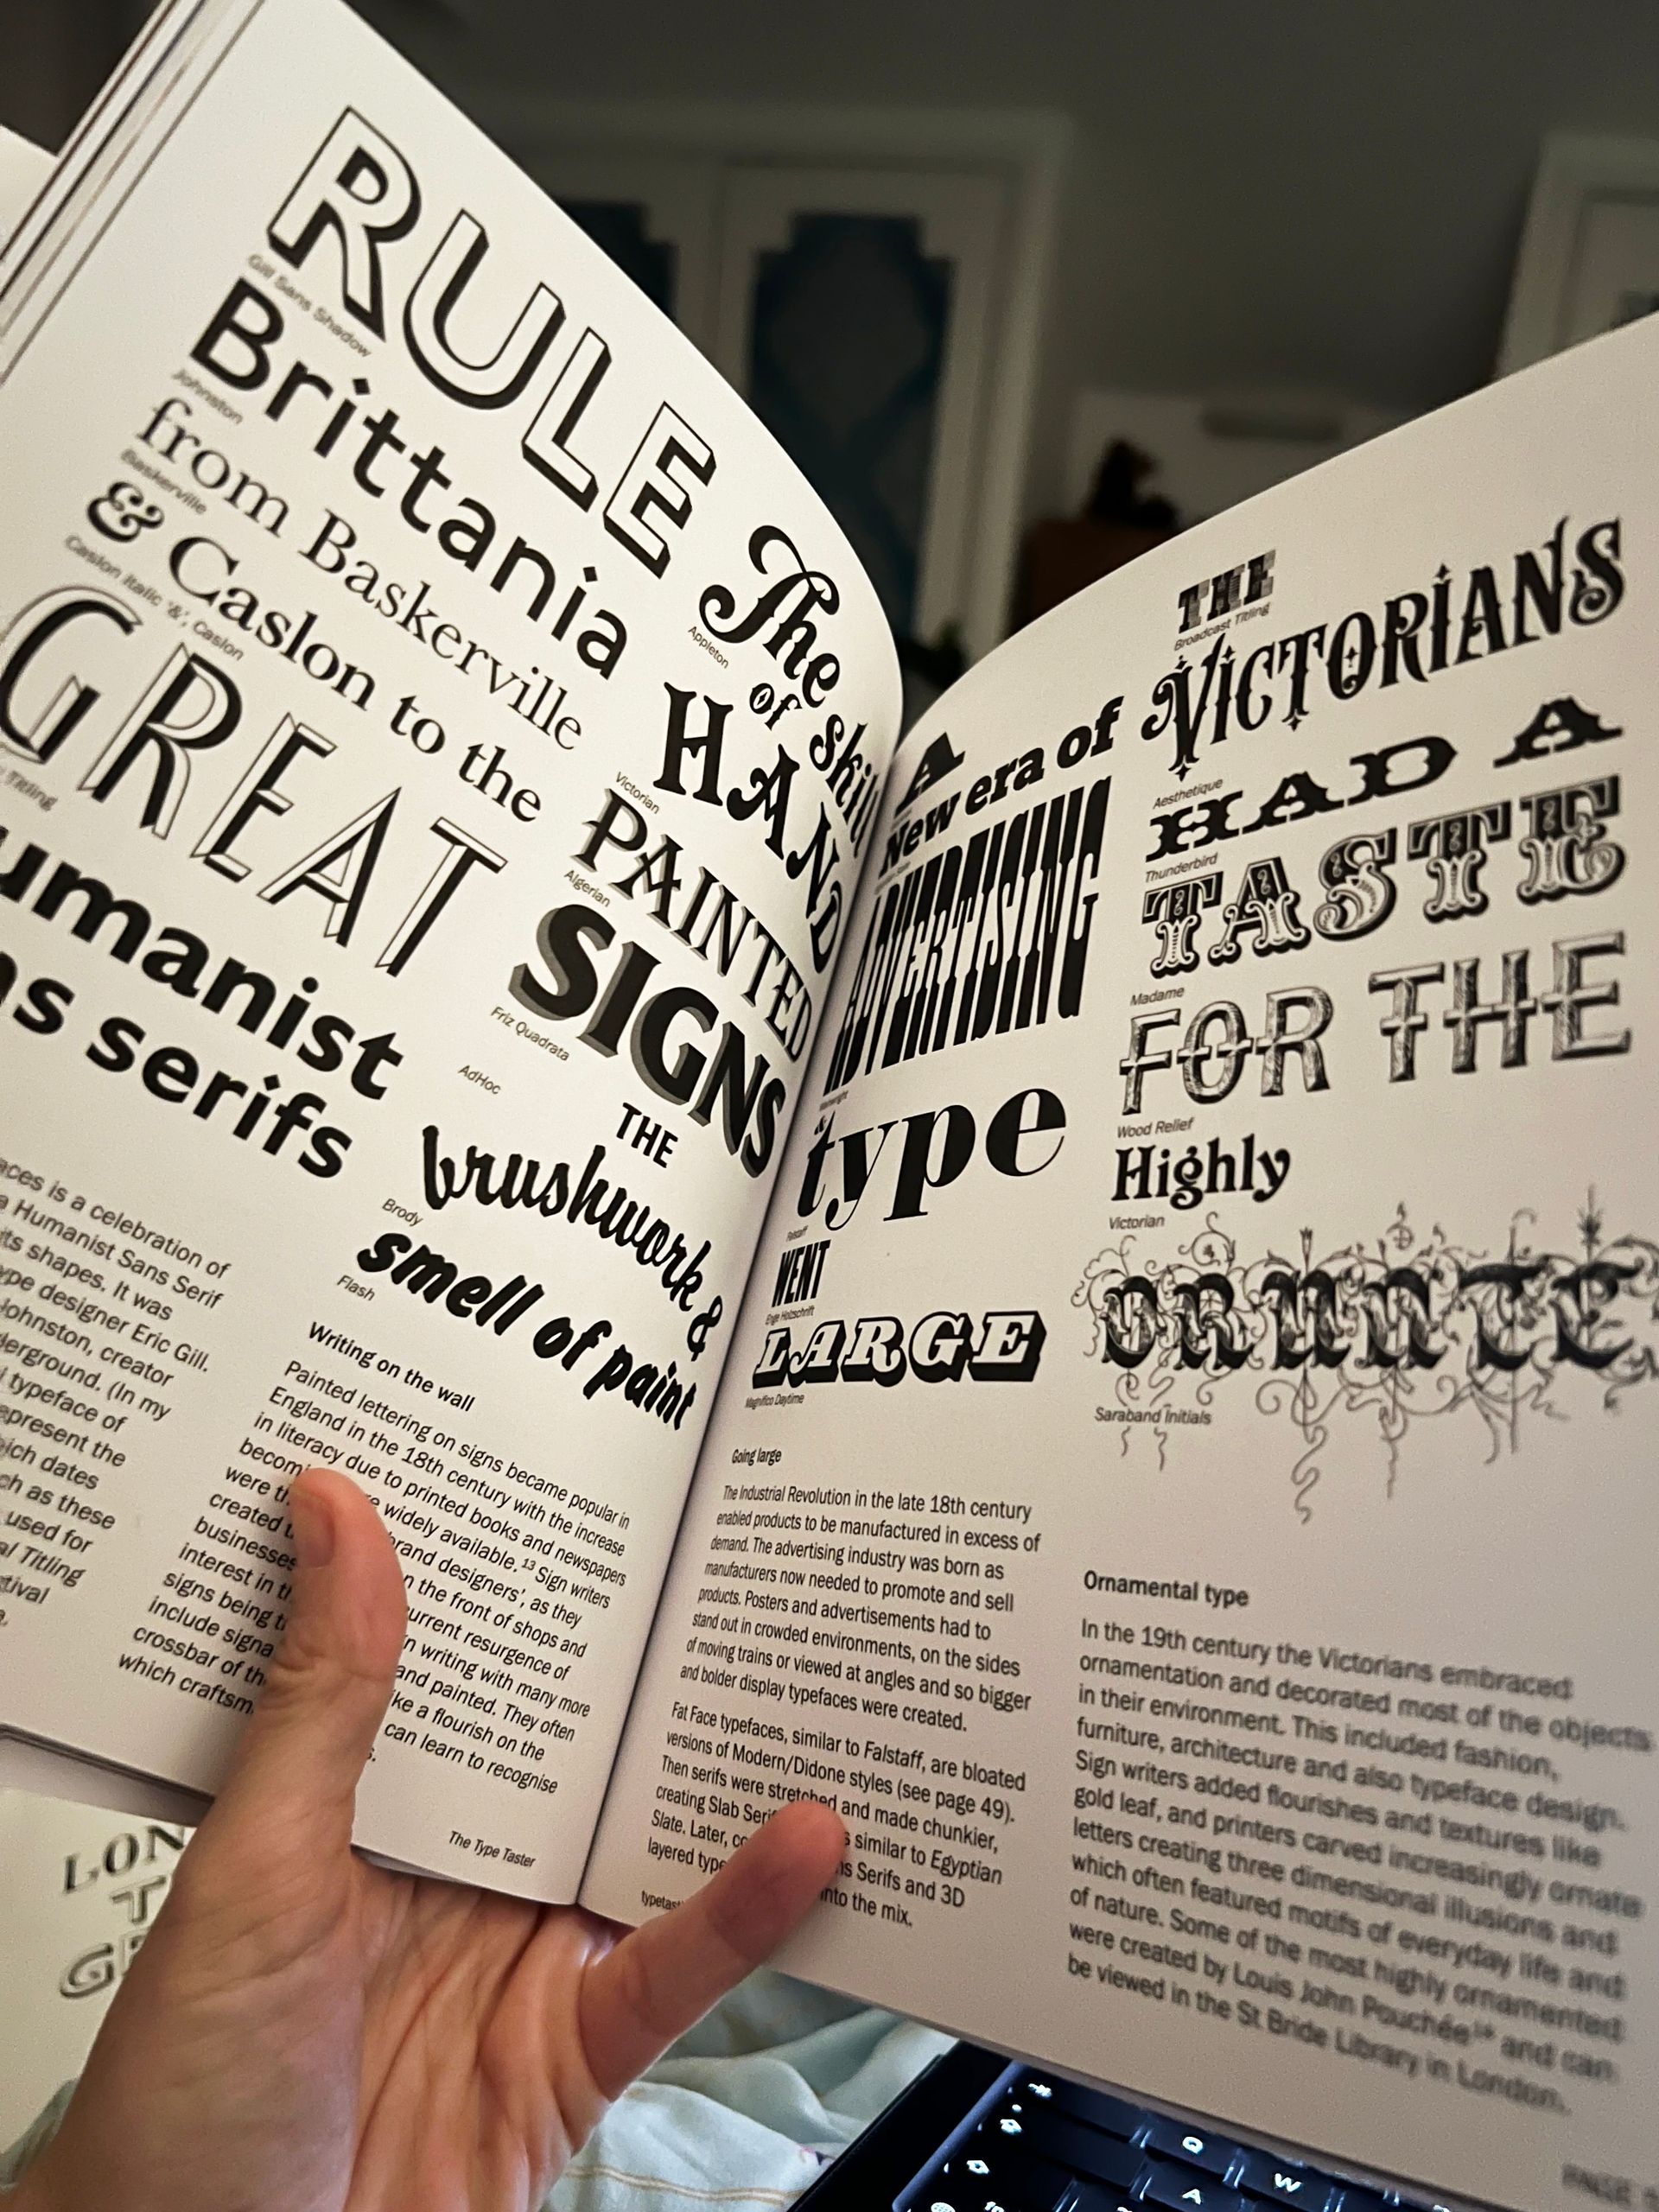 RULE
Gill Sans Shadow
Brittania
Johnston
from Baskerville
Baskerville
& Caslon to the
Caslon Italic '&', Caslon
GREAT
Titling
umanist
ns serifs
aces is a celebration of
a Humanist Sans Serif
its shapes. It was
ype designer Eric Gill.
Johnston, creator
derground. (In my
typeface of
epresent the
ich dates
ch as these
used for
al Titling
stival
The
Appleton
of skill
HAND
Victorian
PAINTED
Algerian
SIGNS
Friz Quadrata
AdHoc
THE
brushwork &
Brody
smell of paint
Flash
Writing on the wall
Painted lettering on signs became popular in
England in the 18th century with the increase
in literacy due to printed books and newspapers
becomi re widely available.¹³ Sign writers
were th brand designers', as they
created n the front of shops and
businesses urrent resurgence of
interest in th n writing with many more
signs being and painted. They often
include signa ike a flourish on the
crossbar of the can learn to recognise
which craftsm s.
The Type Taster
A
New era of
ADVERTISING
type
Falstaff
WENT
Enge Holzschrift
LARGE
Magnifico Daytime
Going large
The Industrial Revolution in the late 18th century
enabled products to be manufactured in excess of
demand. The advertising industry was born as
manufacturers now needed to promote and sell
products. Posters and advertisements had to
stand out in crowded environments, on the sides
of moving trains or viewed at angles and so bigger
and bolder display typefaces were created.
Fat Face typefaces, similar to Falstaff, are bloated
versions of Modern/Didone styles (see page 49).
Then serifs were stretched and made chunkier,
creating Slab Seri s similar to Egyptian
Slate. Later, co ns Serifs and 3D
layered type into the mix.
typetas
THE
Broadcast Titling
VICTORIANS
Aesthetique
HAD A
Thunderbird
TASTE
Madame
FOR THE
Wood Relief
Highly
Victorian
ORNATE
Saraband Initials
Ornamental type
In the 19th century the Victorians embraced
ornamentation and decorated most of the objects
in their environment. This included fashion,
furniture, architecture and also typeface design.
Sign writers added flourishes and textures like
gold leaf, and printers carved increasingly ornate
letters creating three dimensional illusions and
which often featured motifs of everyday life and
of nature. Some of the most highly ornamented
were created by Louis John Pouchée¹⁴ and can
be viewed in the St Bride Library in London.
PAGE
LON
T
G
Q
W
A